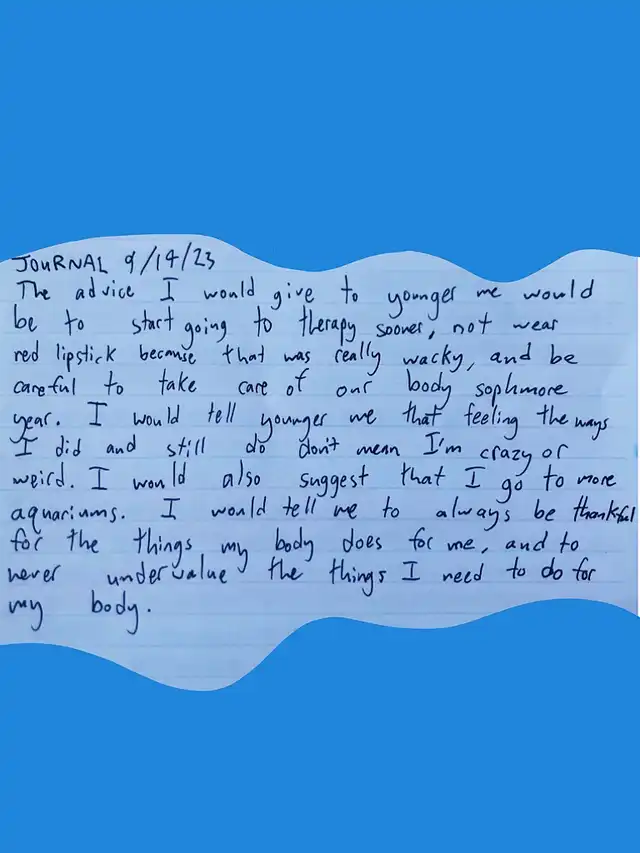 JOURNAL 9/14/23
The advice I would give to younger me would
be to start going to therapy sooner, not wear
red lipstick because that was really wacky, and be
careful to take care of our body sophmore
year. I would tell younger me that feeling the ways
I did and still do don't mean I'm crazy or
weird. I would also suggest that I go to more
aquariums. I would tell me to always be thankful
for the things my body does for me, and to
never undervalue the things I need to do for
my body.